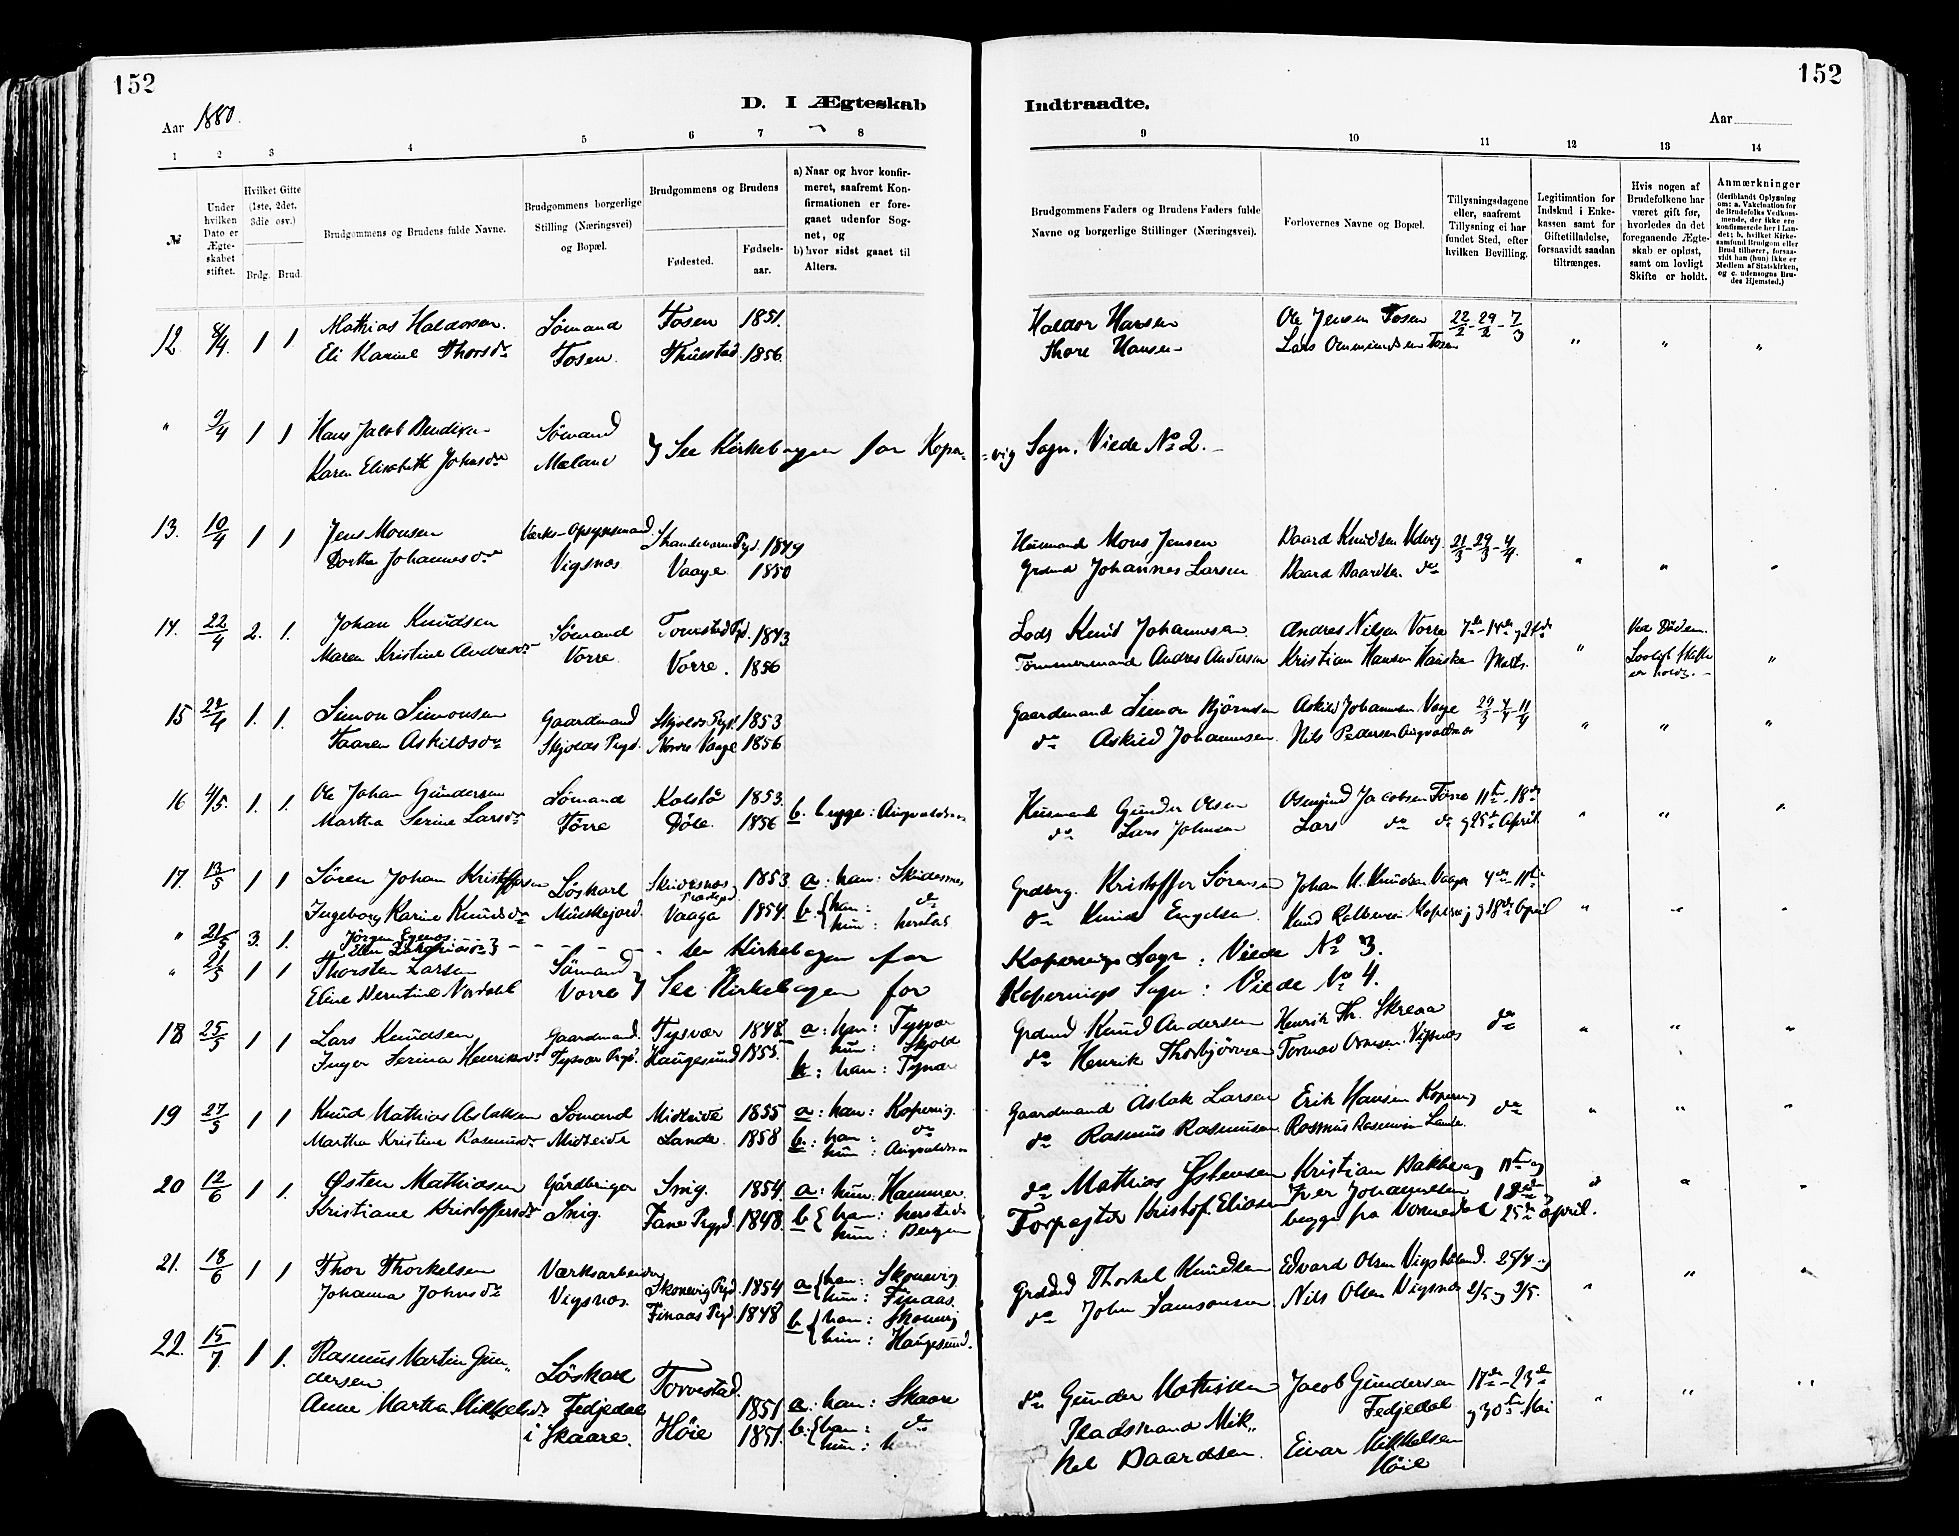 152
152
D. I Ægteskab Indtraadte.
Aar 1880.
Aar
1 2 3 4 5 6 7 8 9 10 11 12 13 14
№
Under hvilken Dato er Ægteskabet stiftet.
Hvilket Gifte (1ste, 2det, 3die osv.)
Brdg. Brud.
Brudgommens og Brudens fulde Navne.
Brudgommens borgerlige Stilling (Næringsvei) og Bopæl.
Brudgommens og Brudens
Fødested.
Fødselsaar.
a) Naar og hvor konfirmeret, saafremt Konfirmationen er foregaaet udenfor Sognet, og
b) hvor sidst gaaet til Alters.
Brudgommens Faders og Brudens Faders fulde Navne og borgerlige Stillinger (Næringsvei).
Forlovernes Navne og Bopæl.
Tillysningsdagene eller, saafremt Tillysning ei har fundet Sted, efter hvilken Bevilling.
Legitimation for Indskud i Enkekassen samt for Giftetilladelse, forsaavidt saadan tiltrænges.
Hvis nogen af Brudefolkene har været gift før, hvorledes da det foregaaende Ægteskab er opløst, samt om lovligt Skifte er holdt.
Anmærkninger (deriblandt Oplysning om: a. Vakcination for de Brudefolks Vedkommende, der ikke ere konfirmerede her i Landet; b. hvilket Kirkesamfund Brudgom eller Brud tilhører, forsaavidt han (hun) ikke er Medlem af Statskirken, og c. udensogns Brudes Hjemsted.)
12. 8/4. 1 1 Mathias Haldorsen. Sømand Fosen 1851. Haldor Hansen Ole Jensen Fosen 22/2 - 29/2 - 7/3
Eli Karine Thorsdr Fosen. Thuestad 1856. Thore Hansen Lars Ommundsen Fosen " " "
" 9/4 1 1 Hans Jacob Bendixen Sømand
Karen Elisabeth Johnsdr Mæland } See Kirkebogen for Kopervig Sogn. Viede No 2.
13. 10/4 1 1 Jens Monsen Værks-Opsynsmand 1849 Husmand Mons Jensen Baard Knudsen 21/3 - 29/3 - 4/4.
Dorthe Johannesdr Vigsnæs Vaage 1850 Grdmd Johannes Larsen Baard Baardsen do " " "
14. 22/4 2. 1. Johan Knudsen Sømand Torvestad Pgd. 1843 Lods Knud Johannesen Andres Nilsen Vorre 7de - 14de og 21de Ved Døden.
Maren Kristine Andresdr Vorre Vorre. 1856 Tømmermand Andres Andersen Kristian Hansen Hauske Marts. " Lovligt Skifte er holdt. "
15 24/4 1. 1. Simon Simonsen Gaardmand Skjolds Pgd. 1853 Gaardmand Simon Bjørnsen Askild Johannesen Vaage 29/3 - 4/4 - 11/4
Taaren Askildsdr Skjolds Pgd. Nordre Vaage 1856 do Askild Johannesen. Nils Pedersen Augvaldsnæs " " "
16 4/5. 1. 1. Ole Johan Gundersen Sømand Kolstø 1853. b. begge: Augvaldsnæs Husmand Gunder Olsen Osmund Jacobsen Førre 11te - 18de
Martha Serine Larsdr Førre Døle. 1856 do Lars Johnsen Lars do do og 25de April " " "
17. 13/5 1 1 Søren Johan Kristoffersen Løskarl Skudesnæs 1853. a: han: Skudesnæs Grdbrg. Kristoffer Sørensen Johan K. Knudsen Vaage 4de - 11te
Ingeborg Karine Knudsdr Vaaga 1854. b. { han: do hun: herstds do Knud Engelsen Kopervig og 18de April " " "
" 21/5 3. 1. Jørgen - - - - se Kirkebogen for Kopervigs Sogn: Viede No 3.
" 21/5 1 1 Thorsten Larsen Sømand
Eline Berntine Nordahl Vorre } See Kirkebogen for Kopervigs Sogn: Viede No 4.
18 25/5 1 1 Lars Knudsen Gaardmand. Tysvær 1848. a: han: Tysvær Grdmd Knud Andersen Henrik Th. Skreaa do
Inger Serina Henriksdr Tysvær Pgd. Haugesund 1855. hun: Skjold do Henrik Thorbjørnsen Tormod Ormsen Vigsnæs " " "
b: han: Tysvær
19 27/5 1 1 Knud Mathias Aslaksen Sømand Midteide 1855 a: han: Kopervig. Gaardmand Aslak Larsen Erik Hansen Kopervig do
Martha Kristine Rasmusdr Midteide Lande. 1858 b: han: do hun: Augvaldsnæs do Rasmus Rasmusen Rasmus Rasmusen Lande. " " "
20 12/6 1 1. Østen Mathiasen Gårdbruger Snig. 1854. a: hun: Hammer. do Mathias Østensen Kristian Bakke og 11te og
Kristiane Kristoffersdr Snig. Fane Prgd. 1848. b { han: herstds hun: Bergen Forpagter Kristof. Eliasen Per Johannesen begge fra Vormedal 18de 25de April.
21. 18/6 1 1 Thor Thorkelsen Værksarbeider Skonevig Pgd. 1854 a { han: Skonevig hun: Finaas. Grdmd Thorkel Knudsen Edvard Olsen 25/4 og
Johanna Johnsdr Vigsnæs. Finaas Pgd. 1848 b { han: Skonevig hun: Haugesund. do John Samsonsen Nils Olsen Vigsnæs 2/5 og 9/5. " " "
22. 15/7 1 1. Rasmus Martin Gundersen Løskarl Torvestad. 1851 a. han: Skaare do Gunder Mathisen Jacob Gundersen Fedjedal 17de - 23de og 30te Mai
Anne Martha Mikkelsdr Fedjedal i Skaare. Høie 1851. b. { han: do hun: Pladsmand Mikkel Baardsen. Einar Mikkelsen Høie " " "